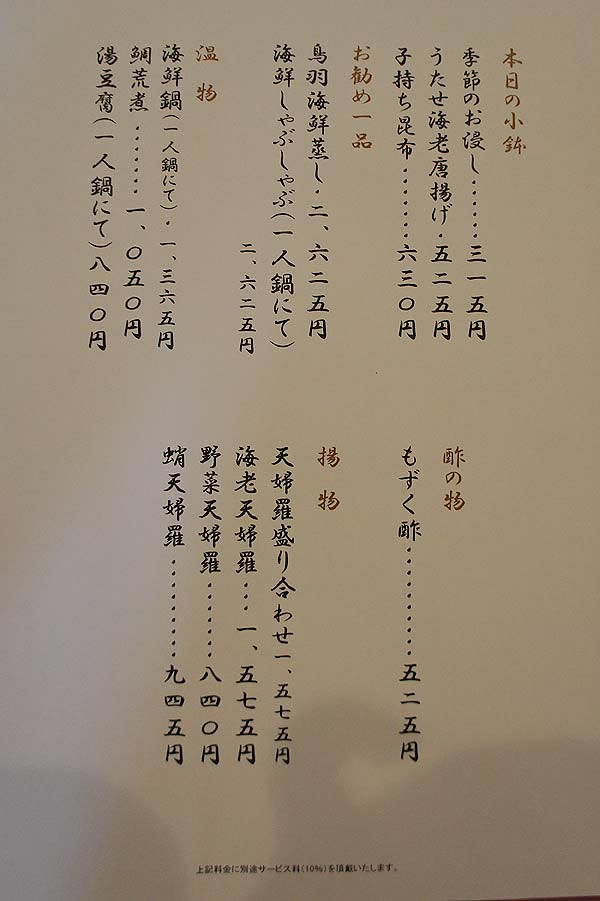 本日の小鉢
季節のお浸し・・・・・・・三一五円
うたせ海老唐揚げ・五二五円
子持ち昆布・・・・・・・・六三〇円
お勧め一品
鳥羽海鮮蒸し・二、六二五円
海鮮しゃぶしゃぶ(一人鍋にて)
二、六二五円
温物
海鮮鍋(一人鍋にて)・一、三六五円
鯛荒煮・・・・・・・一、〇五〇円
湯豆腐(一人鍋にて)八四〇円
酢の物
もずく酢・・・・・・・・・・・五二五円
揚物
天婦羅盛り合わせ一、五七五円
海老天婦羅・・・一、五七五円
野菜天婦羅・・・・・・・・八四〇円
蛸天婦羅・・・・・・・・・・九四五円
上記料金に別途サービス料(10%)を頂戴いたします。